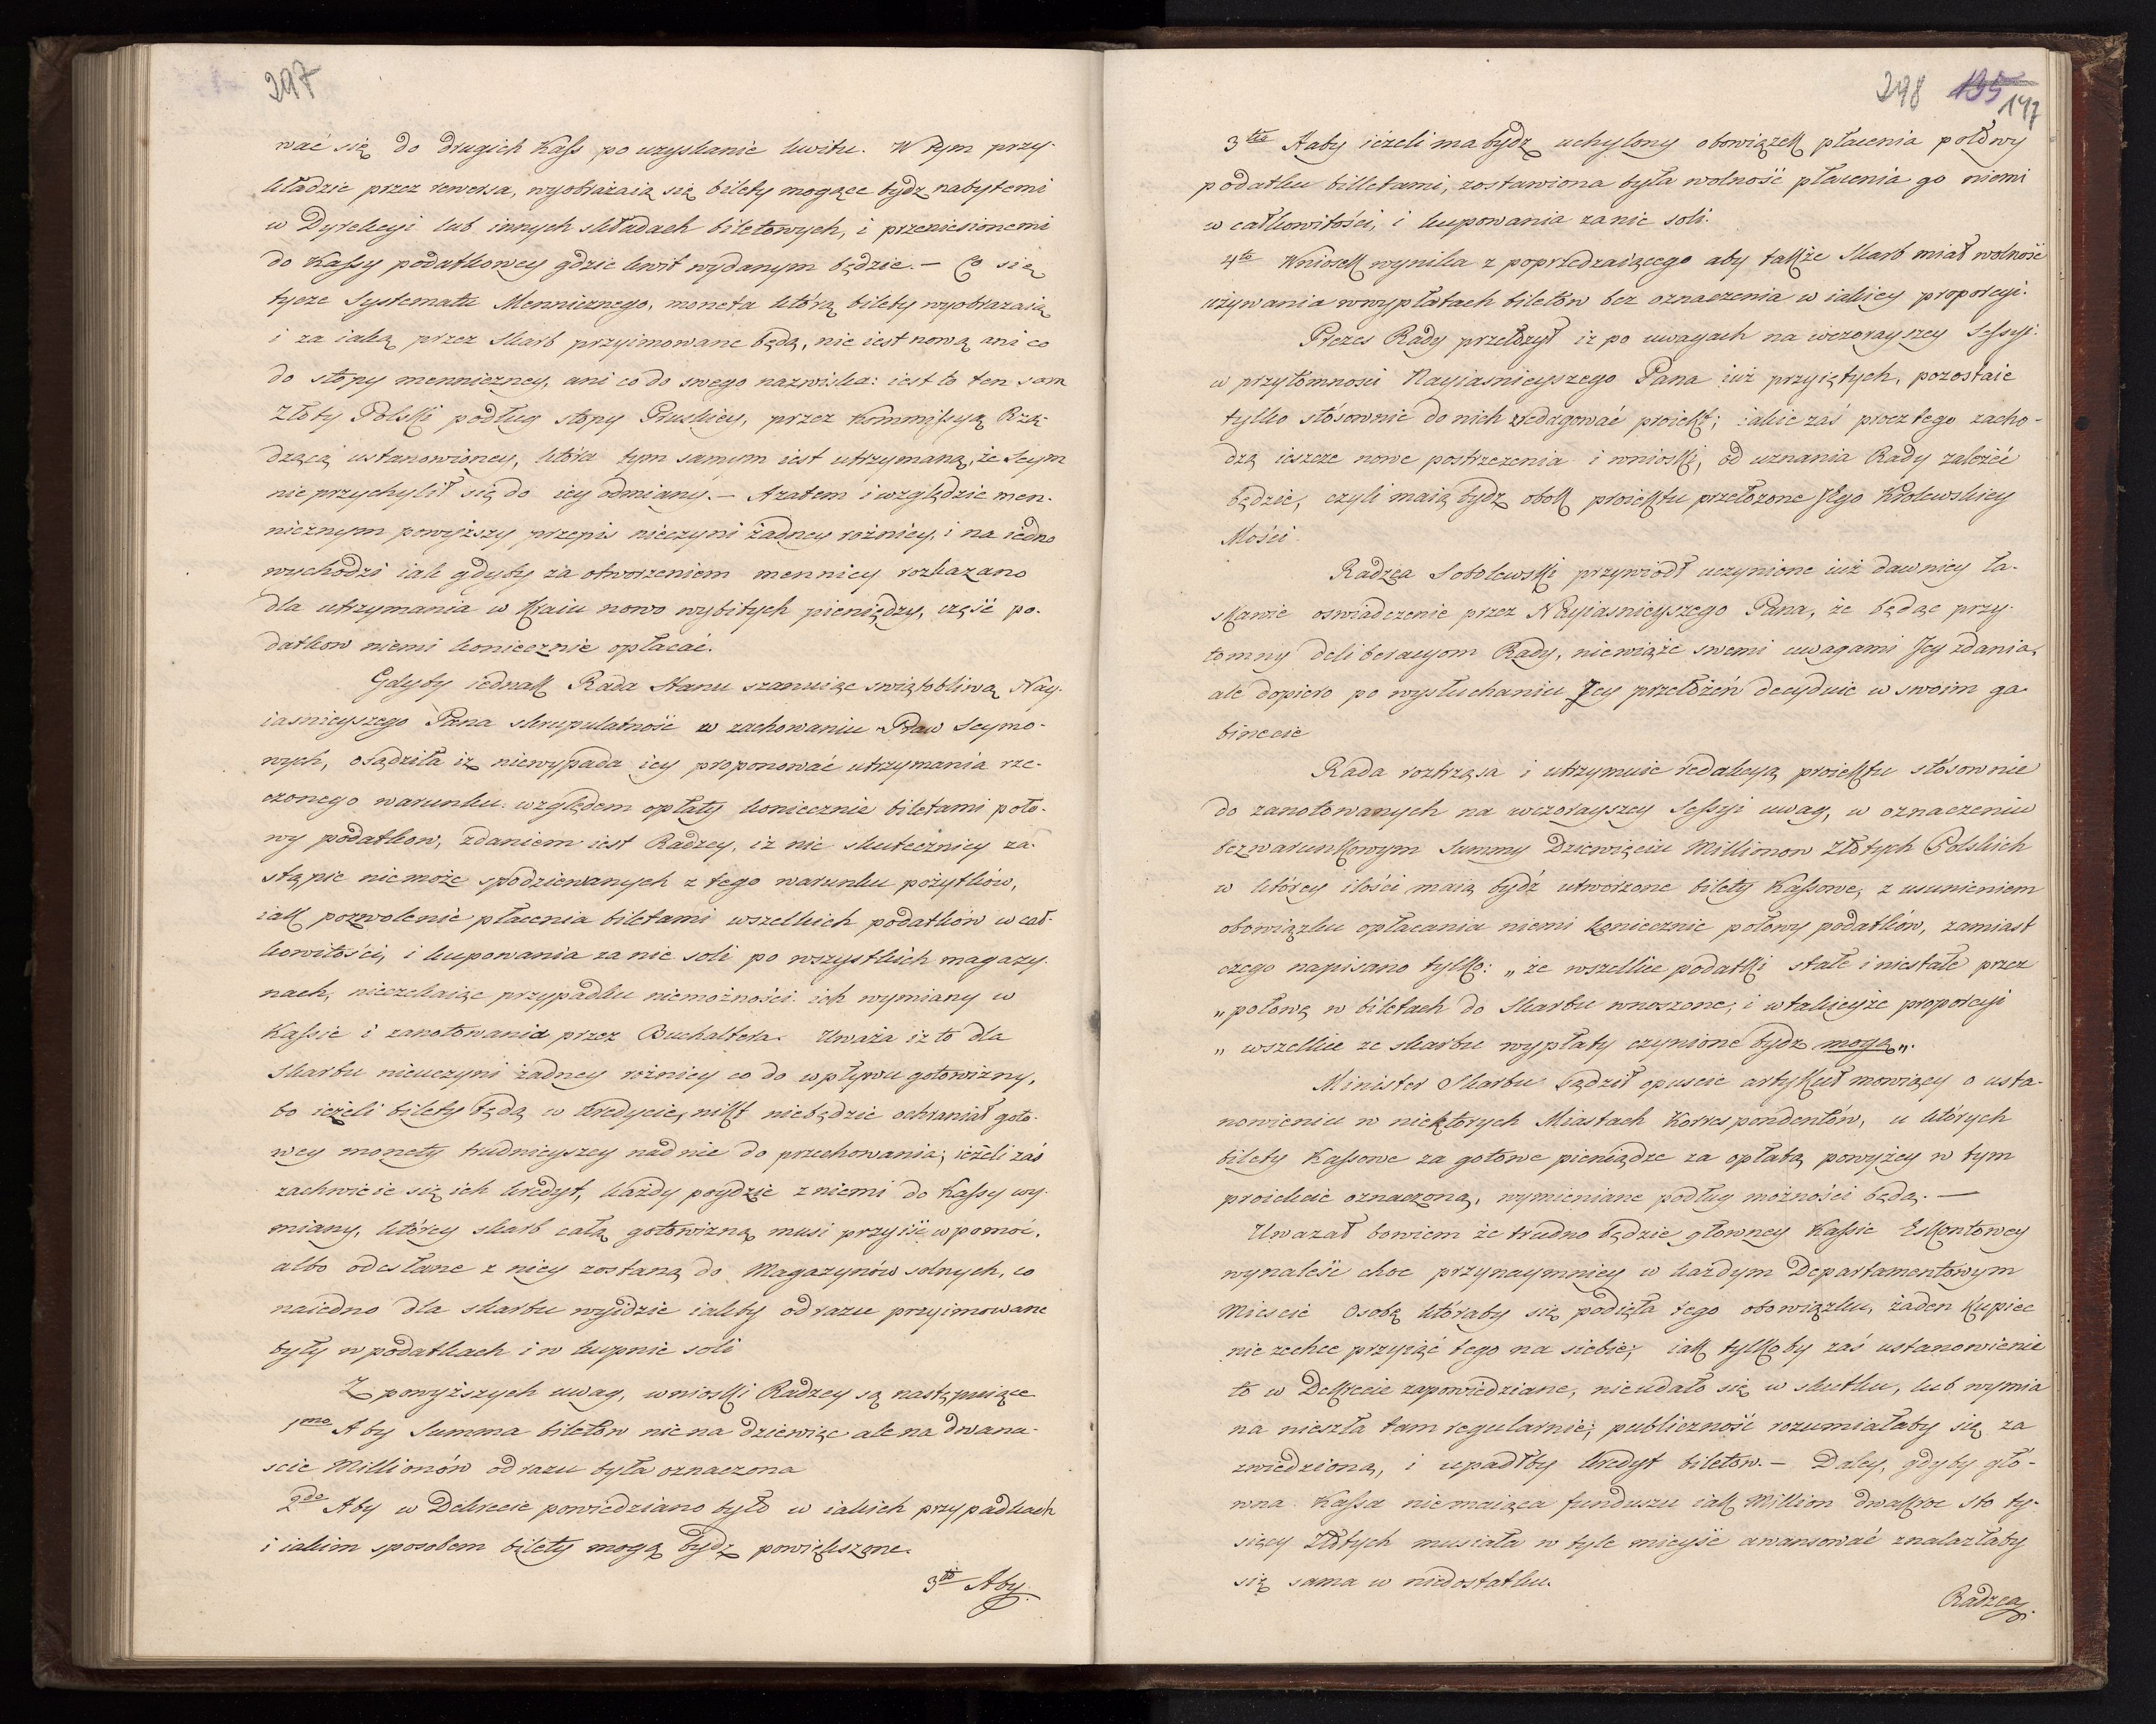 297
wać się do drugich Kass po uzyskanie kwitu. W tym przy-
kładzie przez rewersa, wyobrażaią się bilety mogące bydz nabytemi
w Dyrekcyi lub innych składach biletowych, i przeniesionemi
do Kassy podatkowey gdzie kwit wydanym będzie. – Co się
tycze Systematu Menniczego, moneta którą bilety wyobrażaią
i za iaką przez Skarb przyimowane będą, nie iest nową ani co
do stopy menniczney, ani co do swego nazwiska: iest to ten sam
Złoty Polski podług stopy Pruskiey, przez Kommissyą Rzą-
dzącą ustanowioney, która tym samym iest utrzymaną, że Seym
nie przychylił się do iey odmiany. – A zatem i względzie men-
nicznym powyższy przepis nieczyni żadney rożnicy, i na iedno
wychodzi iak gdyby za otworzeniem mennicy rozkazano
dla utrzymania w Kraiu nowo wybitych pieniędzy, część po-
datkow niemi koniecznie opłacać.
Gdyby iednak Rada Stanu szanuiąc swiątobliwą Nay-
iasnieyszego Pana skrupulatność w zachowaniu Praw Seymo-
wych, osądziła iż niewypada iey proponować utrzymania rze-
czonego warunku względem opłaty koniecznie biletami poło-
wy podatkow, zdaniem iest Radzcy, iż nic skuteczniey za-
stąpic niemoże spodziewanych z tego warunku pożytków,
iak pozwolenie płacenia biletami wszelkich podatków w cał-
kowitości, i kupowania za nie soli po wszystkich magazy-
nach, nieczekaiąc przypadku niemożności ich wymiany w
Kassie i zanotowania przez Buchaltera. Uważa iż to dla
Skarbu nieuczyni żadney rożnicy co do wpływu gotowizny,
bo ieżeli bilety będą w kredycie, nikt niebędzie ochraniał goto-
wey monety trudnieyszey nad nie do przechowania; ieżeli zaś
zachwieie się ich kredyt, każdy poydzie z niemi do Kassy wy-
miany, którey skarb całą gotowizną musi przyiść w pomoc,
albo odesłane z niey zostaną do Magazynów solnych, co
naiedno dla skarbu wyidzie iakby odrazu przyimowane
były w podatkach i w kupnie soli
Z powyższych uwag, wnioski Radzcy są następuiące
1mo Aby Summa biletów nie na dziewięc ale na dwana-
scie Millionów odrazu była oznaczona
2do Aby w Dekrecie powiedziano było w iakich przypadkach
i iakim sposobem bilety mogą bydz powiększone.
3tio Aby
298 195 147
3tio Aaby ieżeli ma bydz uchylony obowiązek płacenia połowy
podatku billetami, zostawiona była wolność płacenia go niemi
w całkowitości, i kupowania za nie soli.
4to Wniosek wynika z poprzedzaiącego aby także Skarb miał wolność
używania w wypłatach biletów bez oznaczenia w iakiey proporcyi.
Prezes Rady przełożył iż po uwagach na wczorayszey Sessyi
w przytomnosci Nayiasnieyszego Pana iuż przyiętych, pozostaie
tylko stósownie do nich redagować proiekt; iakie zaś procz tego zacho-
dzą ieszcze nowe postrzeżenia i wnioski, od uznania Rady zależéć
będzie, czyli maią bydz obok proiektu przełożone JEgo Krolewskiey
Mości.
Radzca Sobolewski przywiodł uczynione iuż dawniey ła-
skawie oswiadczenie przez Nayiasnieyszego Pana, że będąc przy-
tomny deliberacyom Rady, niewiąże swemi uwagami Jey zdania,
ale dopiero po wysłuchaniu Jey przełożeń decyduie w swoim ga-
binecie
Rada roztrząsa i utrzymuie redakcyą proiektu stósownie
do zanotowanych na wczorayszey Sessyi uwag, w oznaczeniu
bezwarunkowym Summy Dziewięciu Millionow Złotych Polskich
w którey ilości maią bydź utworzone bilety Kassowe, z usunieniem
obowiązku opłacania niemi koniecznie połowy podatków, zamiast
czego napisano tylko: „że wszelkie podatki stałe i niestałe przez
„połowę w biletach do Skarbu wnoszone, i w takieyże proporcyi
„wszelkie ze skarbu wypłaty czynione bydz mogą„.
Minister Skarbu sądził opuscic artykuł mowiący o usta-
nowieniu w niektorych Miastach Korrespondentów, u których
bilety Kassowe za gotowe pieniądze za opłatą powyżey w tym
proiekcie oznaczoną, wymieniane podług możności będą. —
Uważał bowiem że trudno będzie głowney Kassie Eskontowey
wynaleść choc przynaymniey w każdym Departamentowym
Miescie Osobę któraby się podięła tego obowiązku, żaden kupiec
nie zechce przyiąć tego na siebie; iak tylkoby zaś ustanowienie
to w Dekrecie zapowiedziane, nieudało się w skutku, lub wymia
na nieszła tam regularnie; publiczność rozumiałaby się za
zwiedzioną, i upadłby kredyt biletow. – Daley, gdyby gło-
wna Kassa niemaiąca funduszu iak Million dwakroc sto ty-
sięcy Złotych musiała w tyle mieysc awansować znalazłaby
się sama w niedostatku.
Radzca